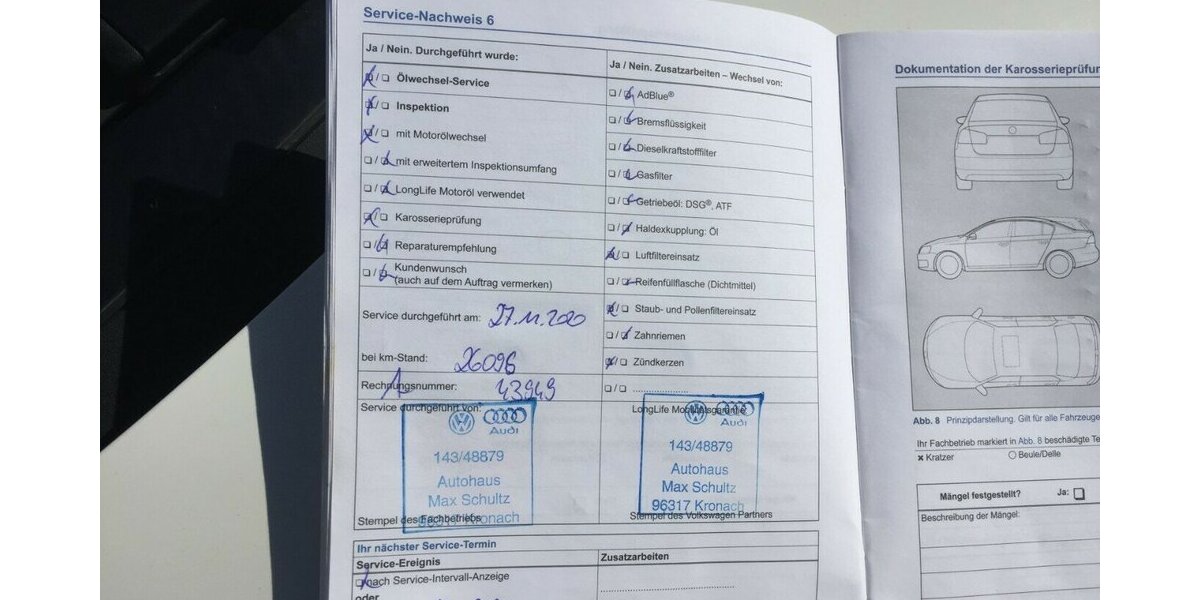 Service-Nachweis 6
Ja / Nein. Durchgeführt wurde:
Ölwechsel-Service
Inspektion
mit Motorölwechsel
mit erweitertem Inspektionsumfang
LongLife Motoröl verwendet
Karosserieprüfung
Reparaturempfehlung
Kundenwunsch
(auch auf dem Auftrag vermerken)
Service durchgeführt am: 27.11.2020
bei km-Stand: 26096
Rechnungsnummer: 43949
Service durchgeführt von:
Audi
143/48879
Autohaus
Max Schultz
96317 Kronach
Stempel des Fachbetriebs
Ja / Nein. Zusatzarbeiten – Wechsel von:
AdBlue®
Bremsflüssigkeit
Dieselkraftstofffilter
Gasfilter
Getriebeöl: DSG®, ATF
Haldexkupplung: Öl
Luftfiltereinsatz
Reifenfüllflasche (Dichtmittel)
Staub- und Pollenfiltereinsatz
Zahnriemen
Zündkerzen
LongLife Mobilitätsgarantie
Audi
143/48879
Autohaus
Max Schultz
96317 Kronach
Stempel des Volkswagen Partners
Ihr nächster Service-Termin
Service-Ereignis
Zusatzarbeiten
nach Service-Intervall-Anzeige
oder
Dokumentation der Karosserieprüfun
Abb. 8 Prinzipdarstellung. Gilt für alle Fahrzeuge
Ihr Fachbetrieb markiert in Abb. 8 beschädigte Te
Kratzer
Beule/Delle
Mängel festgestellt?
Ja:
Beschreibung der Mängel: